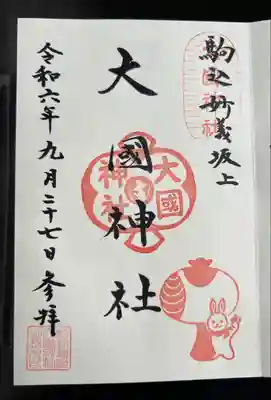 駒込妙義坂上
大國神社
大國神社
令和六年九月二十七日参拝